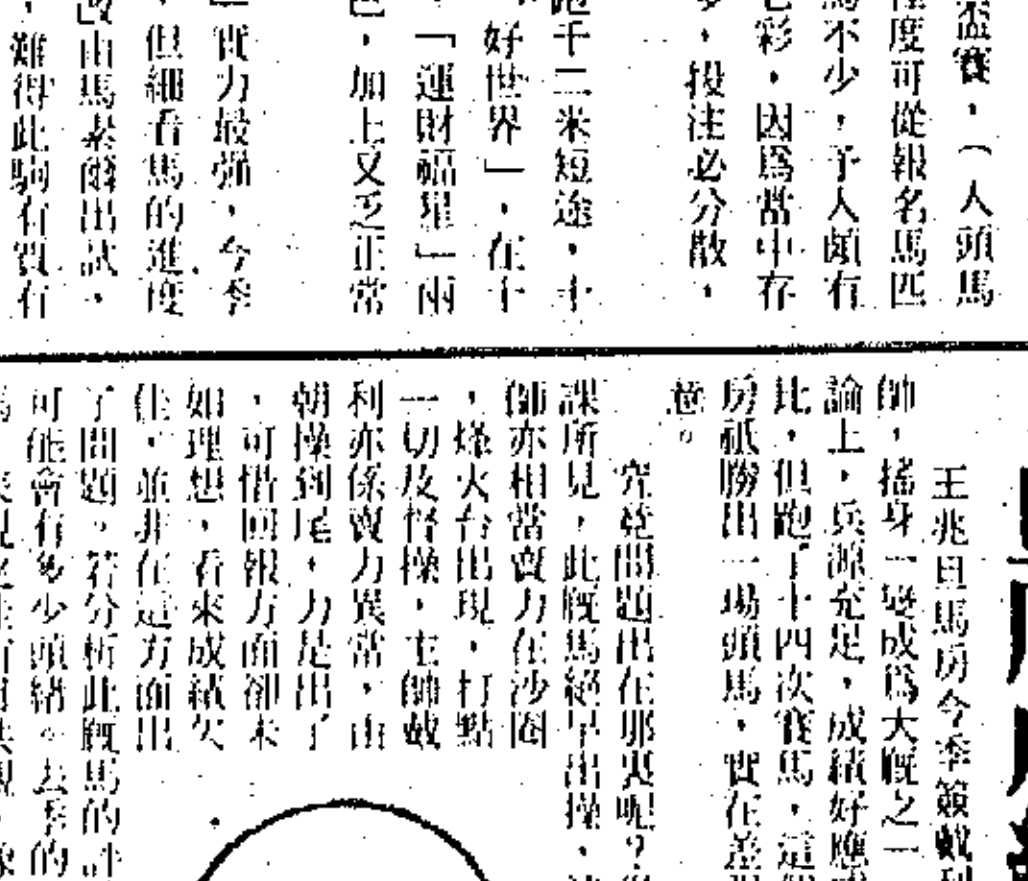 盃賽，（人頭馬
度可從報名馬匹
馬不少，予人頗有
彩，因為當中存
，投注必分散，
跑千二米短途，十
好世界」，在十
「運財福星」兩
，加上又乏正常
實力最強，今季
，但細看馬的進度
改由馬素爾出試，
難得此駒有質有
王兆旦馬房今季簽戴利
帥，搖身一變成為大廐之一
論上，兵源充足，成績好應
比，但跑了十四次賽馬，這
房祇勝出一場頭馬，實在差
意。
究竟問題出在那裏呢？
課所見，此廐馬絕早出操，
師亦相當賣力在沙圈
，烽火台出現，打點
一切及督操，主帥戴
利亦係賣力異常，由
朝操到尾，力是出了
，可惜回報方面卻未
如理想，看來成績欠
佳，並非在這方面出
了問題。若分析此廐馬的評
可能會有多少頭緒。去季的